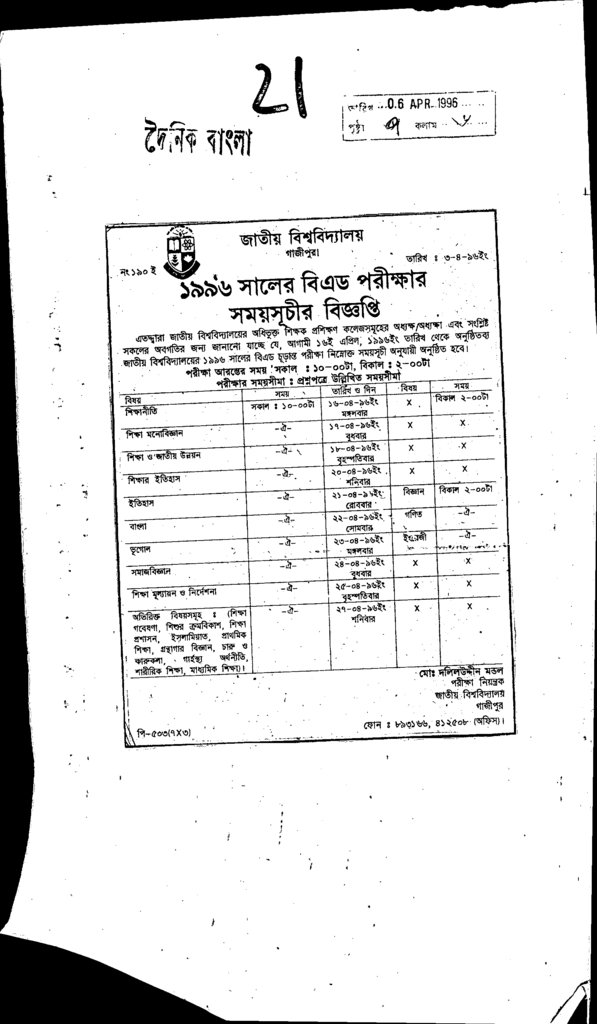 21
তারিখ ...06 APR. 1996 ......
পৃষ্ঠা ৭ কলাম ... ৮ ...
দৈনিক বাংলা
জাতীয় বিশ্ববিদ্যালয়
গাজীপুর।
নং ১৯০ ই তারিখ : ৩-৪-৯৬ইং
১৯৯৬ সালের বিএড পরীক্ষার
সময়সূচীর বিজ্ঞপ্তি
এতদ্দ্বারা জাতীয় বিশ্ববিদ্যালয়ের অধিভুক্ত শিক্ষক প্রশিক্ষণ কলেজসমূহের অধ্যক্ষ/অধ্যক্ষা এবং সংশ্লিষ্ট
সকলের অবগতির জন্য জানানো যাচ্ছে যে, আগামী ১৬ই এপ্রিল, ১৯৯৬ইং তারিখ থেকে অনুষ্ঠিতব্য
জাতীয় বিশ্ববিদ্যালয়ের ১৯৯৬ সালের বিএড চূড়ান্ত পরীক্ষা নিম্নোক্ত সময়সূচী অনুযায়ী অনুষ্ঠিত হবে।
পরীক্ষা আরম্ভের সময় : সকাল : ১০-০০টা, বিকাল : ২-০০টা
পরীক্ষার সময়সীমা : প্রশ্নপত্রে উল্লিখিত সময়সীমা
বিষয় সময় তারিখ ও দিন বিষয় সময়
শিক্ষানীতি সকাল : ১০-০০টা ১৬-০৪-৯৬ইং X বিকাল ২-০০টা
মঙ্গলবার
শিক্ষা মনোবিজ্ঞান -ঐ- ১৭-০৪-৯৬ইং X X
বুধবার
শিক্ষা ও জাতীয় উন্নয়ন -ঐ- ১৮-০৪-৯৬ইং X X
বৃহস্পতিবার
শিক্ষার ইতিহাস -ঐ- ২০-০৪-৯৬ইং X X
শনিবার
ইতিহাস -ঐ- ২১-০৪-৯৬ইং বিজ্ঞান বিকাল ২-০০টা
রোববার
বাংলা -ঐ- ২২-০৪-৯৬ইং গণিত -ঐ-
সোমবার
ভূগোল -ঐ- ২৩-০৪-৯৬ইং ইংরেজী -ঐ-
মঙ্গলবার
সমাজবিজ্ঞান -ঐ- ২৪-০৪-৯৬ইং X X
বুধবার
শিক্ষা মূল্যায়ন ও নির্দেশনা -ঐ- ২৫-০৪-৯৬ইং X X
বৃহস্পতিবার
অতিরিক্ত বিষয়সমূহ : (শিক্ষা -ঐ- ২৭-০৪-৯৬ইং X X
গবেষণা, শিশুর ক্রমবিকাশ, শিক্ষা শনিবার
প্রশাসন, ইসলামিয়াত, প্রাথমিক
শিক্ষা, গ্রন্থাগার বিজ্ঞান, চারু ও
কারুকলা, গার্হস্থ্য অর্থনীতি,
শারীরিক শিক্ষা, মাধ্যমিক শিক্ষা)।
মোঃ দলিলউদ্দীন মন্ডল
পরীক্ষা নিয়ন্ত্রক
জাতীয় বিশ্ববিদ্যালয়
গাজীপুর
ফোন : ৮৯৩১৬৬, ৪১২৫০৮ (অফিস)।
পি-৫০৩(৭X৩)